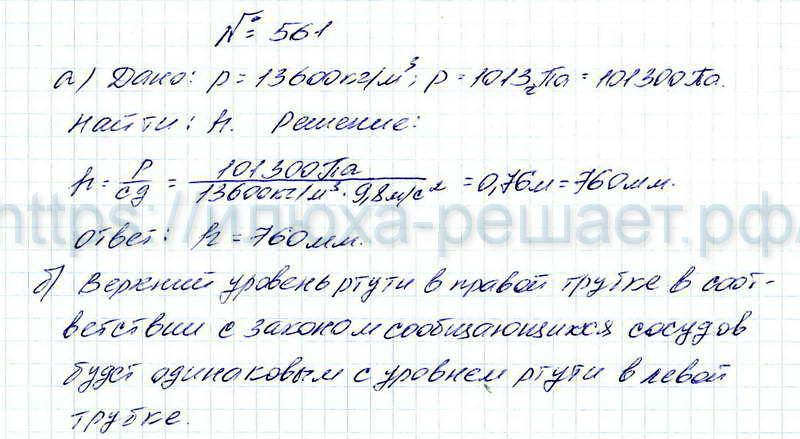 № 561
а) Дано: ρ = 13600кг/м³; p = 1013гПа = 101300Па.
Найти: h. Решение:
h = p/ρg = 101300Па/13600кг/м³ · 9,8м/с² = 0,76м = 760мм.
https://илюха-решает.рф/
Ответ: h = 760мм.
б) Верхний уровень ртути в правой трубке в соот-
ветствии с законом сообщающихся сосудов
будет одинаковым с уровнем ртути в левой
трубке.